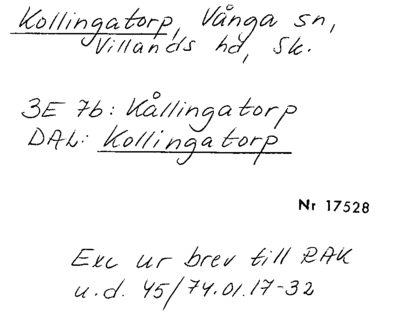 Kollingatorp, Vånga sn,
Villands hd, Sk.
3E 7b: Kållingatorp
DAL: Kollingatorp
Nr 17528
Exc ur brev till RAK
u.d. 45/74.01.17-32